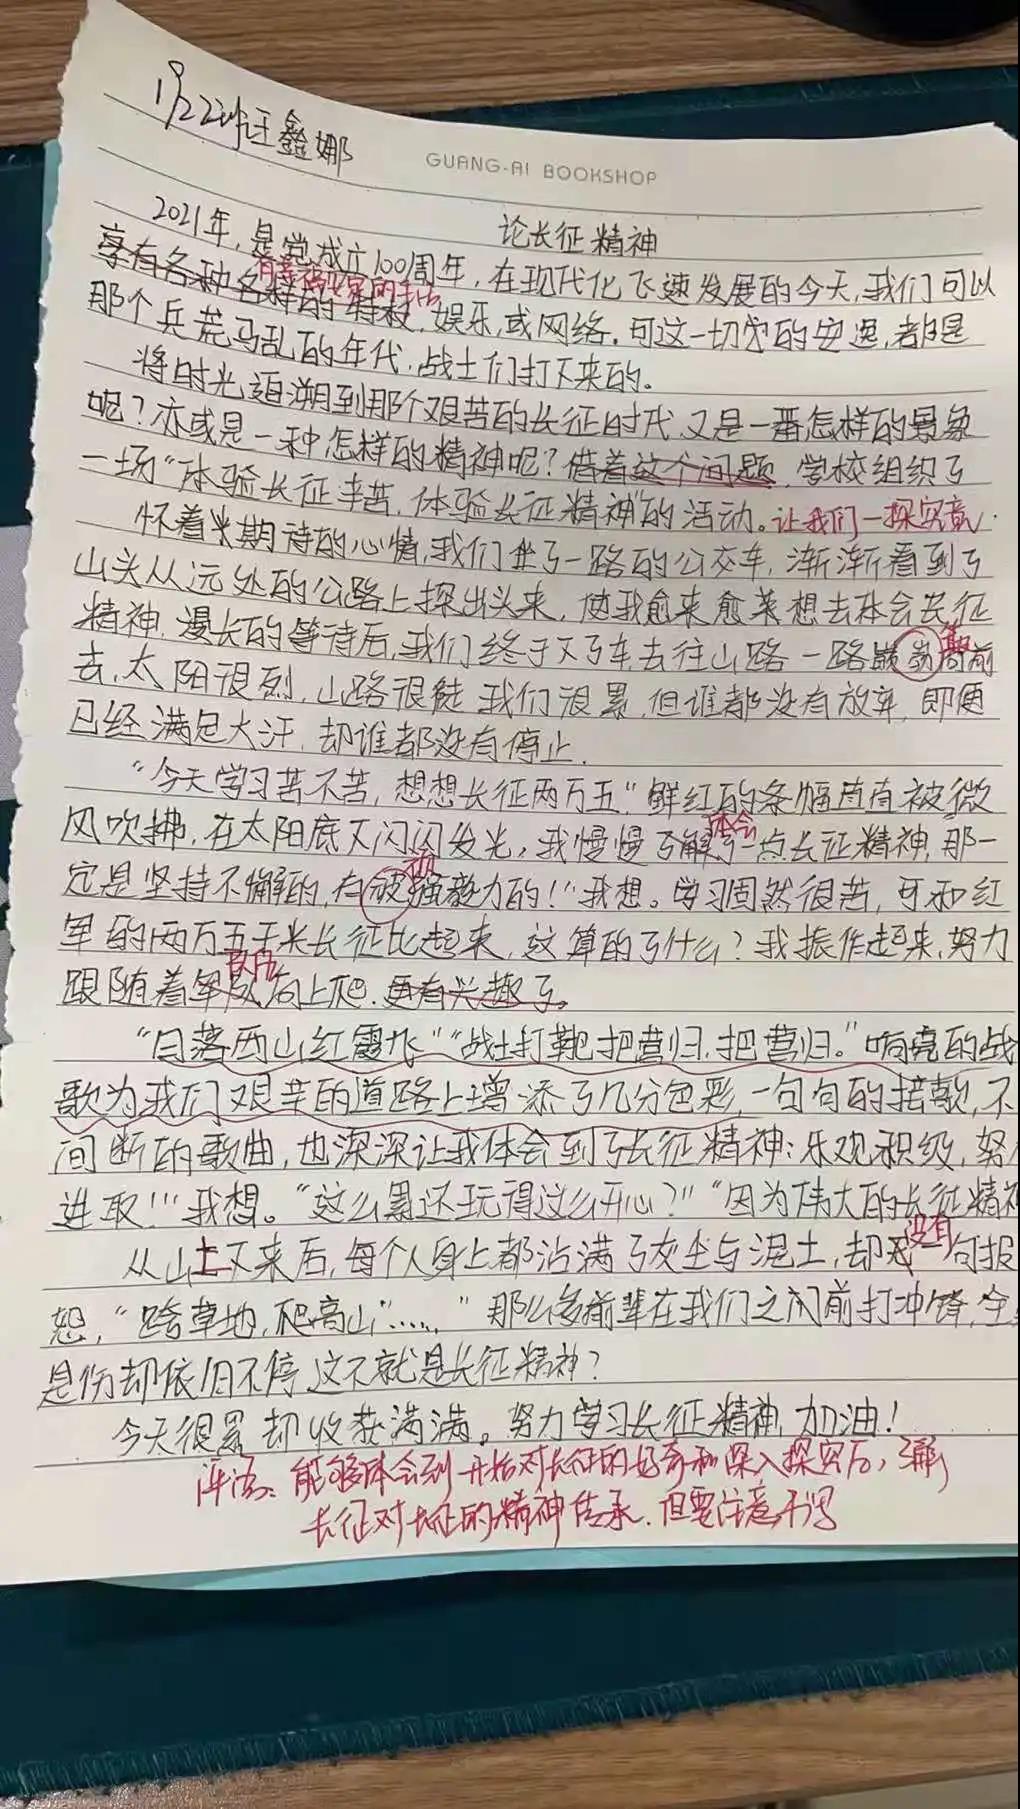 22班汪鑫娜
GUANG-AI BOOKSHOP
论长征精神
2021年,是党成立100周年,在现代化飞速发展的今天,我们可以
享有各种各样的 娱乐,或网络。可这一切的安逸,都是
那个兵荒马乱的年代,战士们打下来的。
将时光追溯到那个艰苦的长征时代,又是一番怎样的景象
呢?亦或是一种怎样的精神呢?借着这个问题,学校组织了
一场“体验长征辛苦,体验长征精神”的活动。让我们一探究竟
怀着期待的心情,我们坐了一路的公交车,渐渐看到了
山头从远处的公路上探出头来,使我愈来愈来想去体会长征
精神,漫长的等待后,我们终于下了车去往山路一路 向前
去,太阳很烈,山路很陡,我们很累,但谁都没有放弃,即便
已经满是大汗,却谁都没有停止.
“今天学习苦不苦,想想长征两万五”鲜红的条幅直直被微
风吹拂,在太阳底下闪闪发光,我慢慢了解 体会 一点长征精神,那一
定是坚持不懈的,有 强毅力的!”我想。学习固然很苦,可和红
军的两万五千米长征比起来,这算的了什么?我振作起来,努力
跟随着 队伍 向上爬,更有兴趣了。
“日落西山红霞飞”“战士打靶把营归,把营归。”响亮的战
歌为我们艰辛的道路上增添了几分色彩,一句句的接歌,不
间断的歌曲,也深深让我体会到了长征精神:乐观积级,努
进取!”我想。“这么累还玩得这么开心?”“因为伟大的长征精神
从山上下来后,每个人身上都沾满了灰尘与泥土,却 没有 一句报
怨,“跨草地,爬高山”……”那么多前辈在我们之前打冲锋,全
是伤却依旧不停,这不就是长征精神?
今天很累,却收获满满。努力学习长征精神,加油!
评语:能够体会到一开始对长征的好奇和深入探究后,
长征对长征的精神传承,但要注意